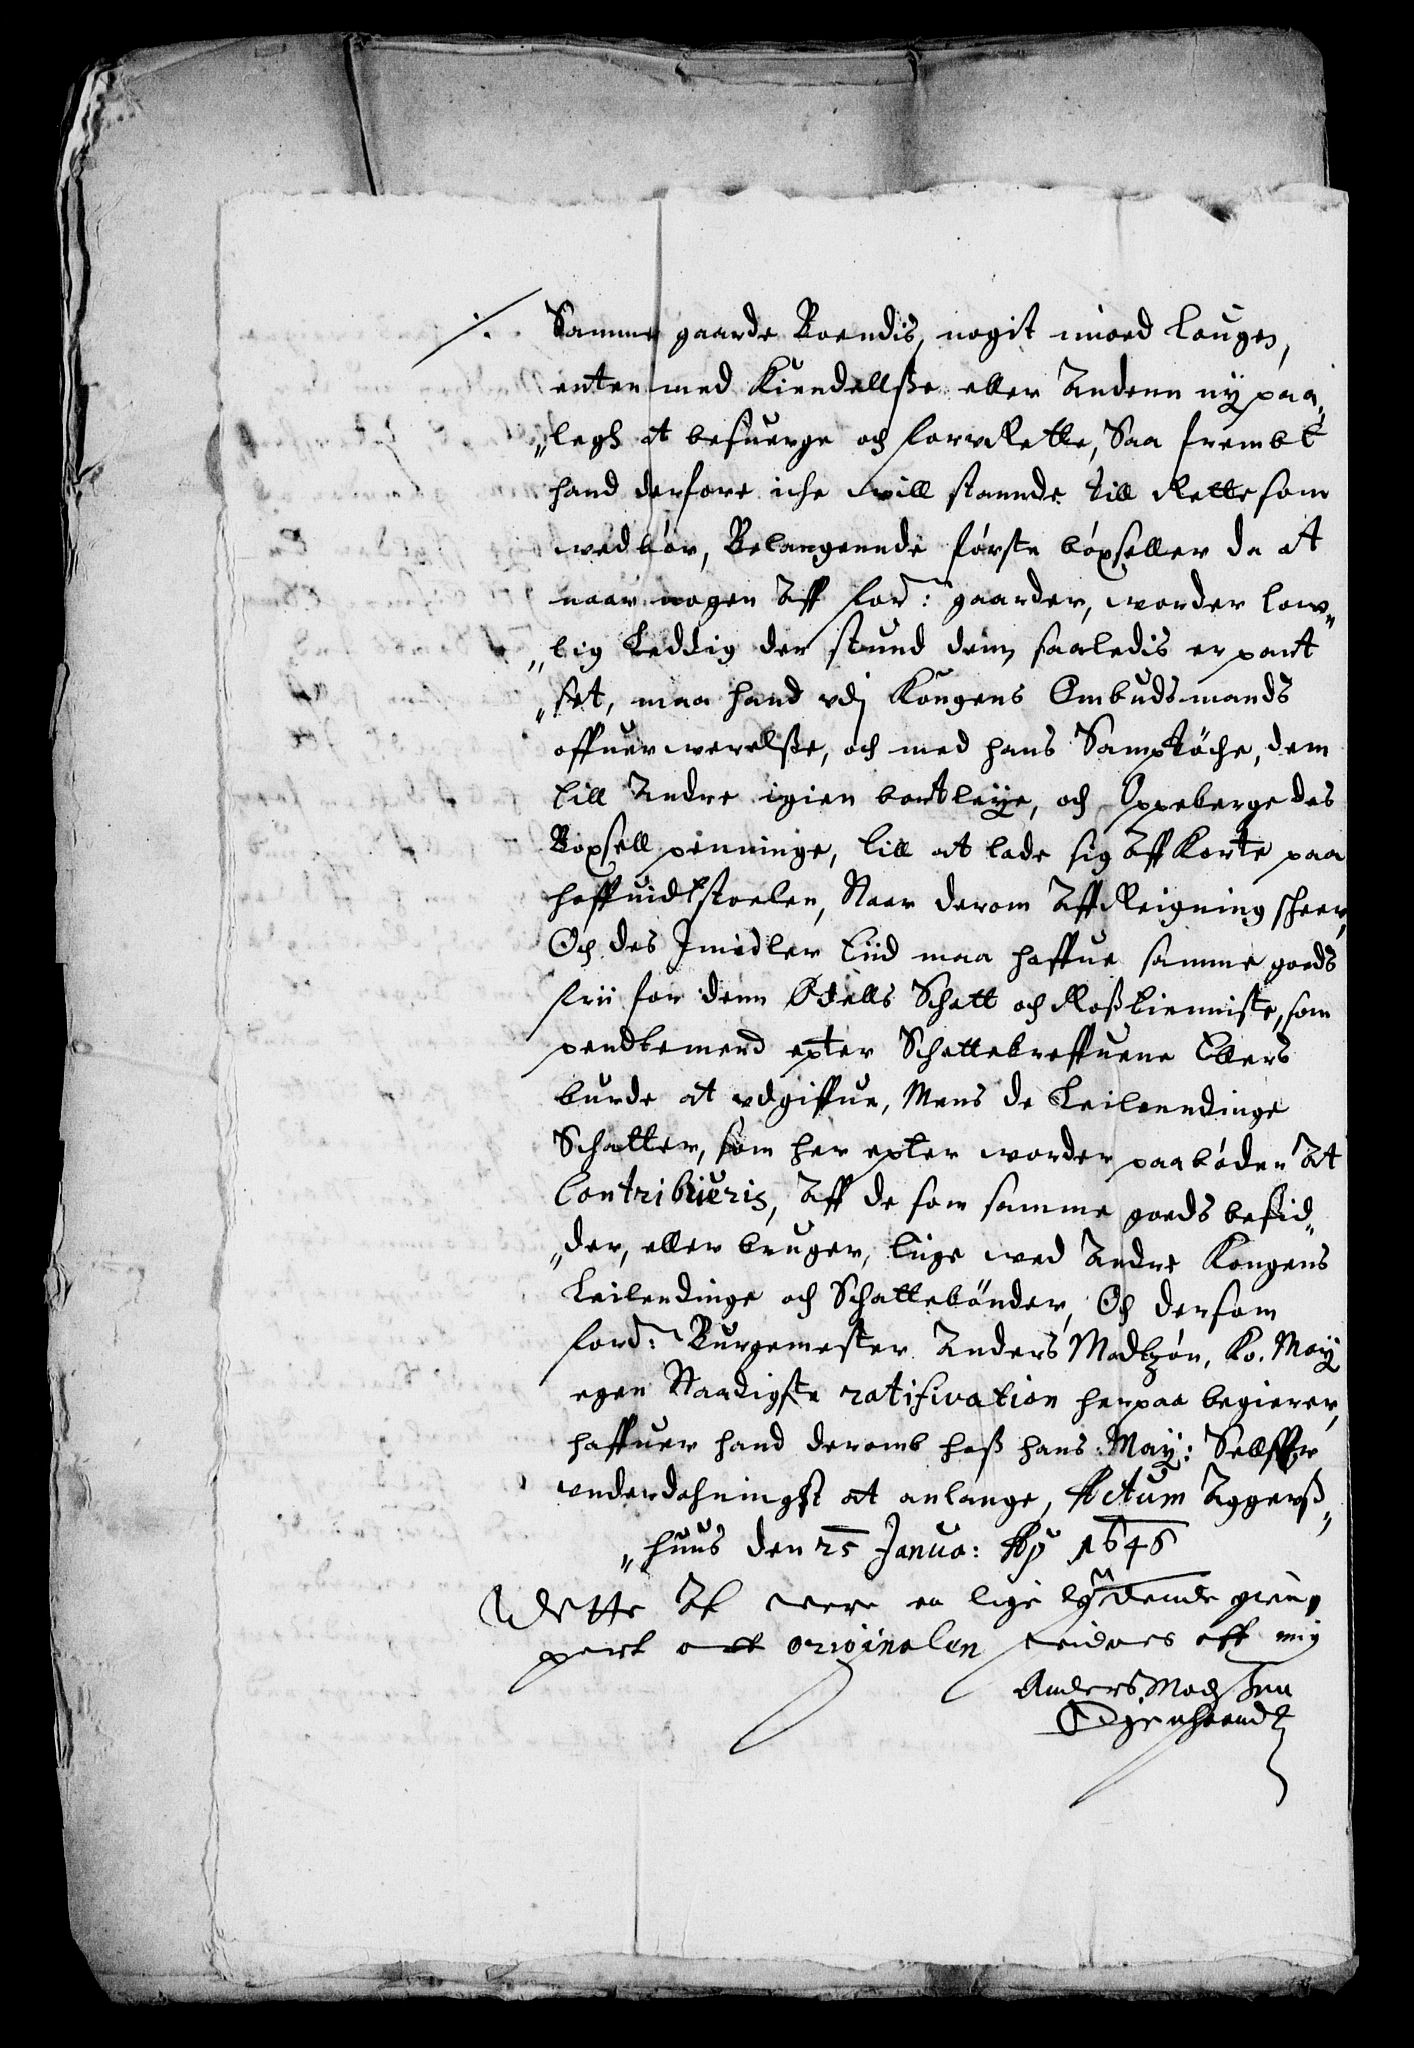 Samme gaarde Boendis, nogit imoed lougen,
enten med Kiendellsße eller Andenn ny paa„
„legh at besuerge och forvRette, Saa frembt
hand derfore iche will stannde till Rette som
wedbör, Belangennde förste böxseller da at
naar nogen Aff ford: gaarder, worder low„
„lig Leddig der stund dem saaledis er pant
„set, maa hand vdj Kongens Ombudsmands
offuerwerelsße, och med hans Samptöche, dem
till Andre igien bortleye, och Oppeberge des
Boxsell penninge, till at lade sig Affkorte paa
hoffuidtstoelen, Naar derom Affreigning scheer,
Och des Jmidler tiid maa haffue samme goeds
frii for denn Odells Schatt och Roßtienniste, som
pendtemend epter Schattebreffuene Ellers
burde at vdgiffue, Mens de Leilenndinge
Schatter, som her epter worder paabóden At
Contribueris, Aff de som samme goeds besid„
„der, eller bruger, liige wed Andre Kongens
Leilendinge och Schattebönder, Och dersom
ford: Burgemester Anders Madtzón, Ko. May
egen Naadigste ratification herpaa begierer,
haffuer hand deromb hoß hans May: Sellffr
vnderdahningst at anlange, Actum Aggerß„
„huus den 25 Janua: Ao 1646
Dette At were en lige lydende gien
part aff originalen widnes aff mig
Anders Madsen
Egenhaandt